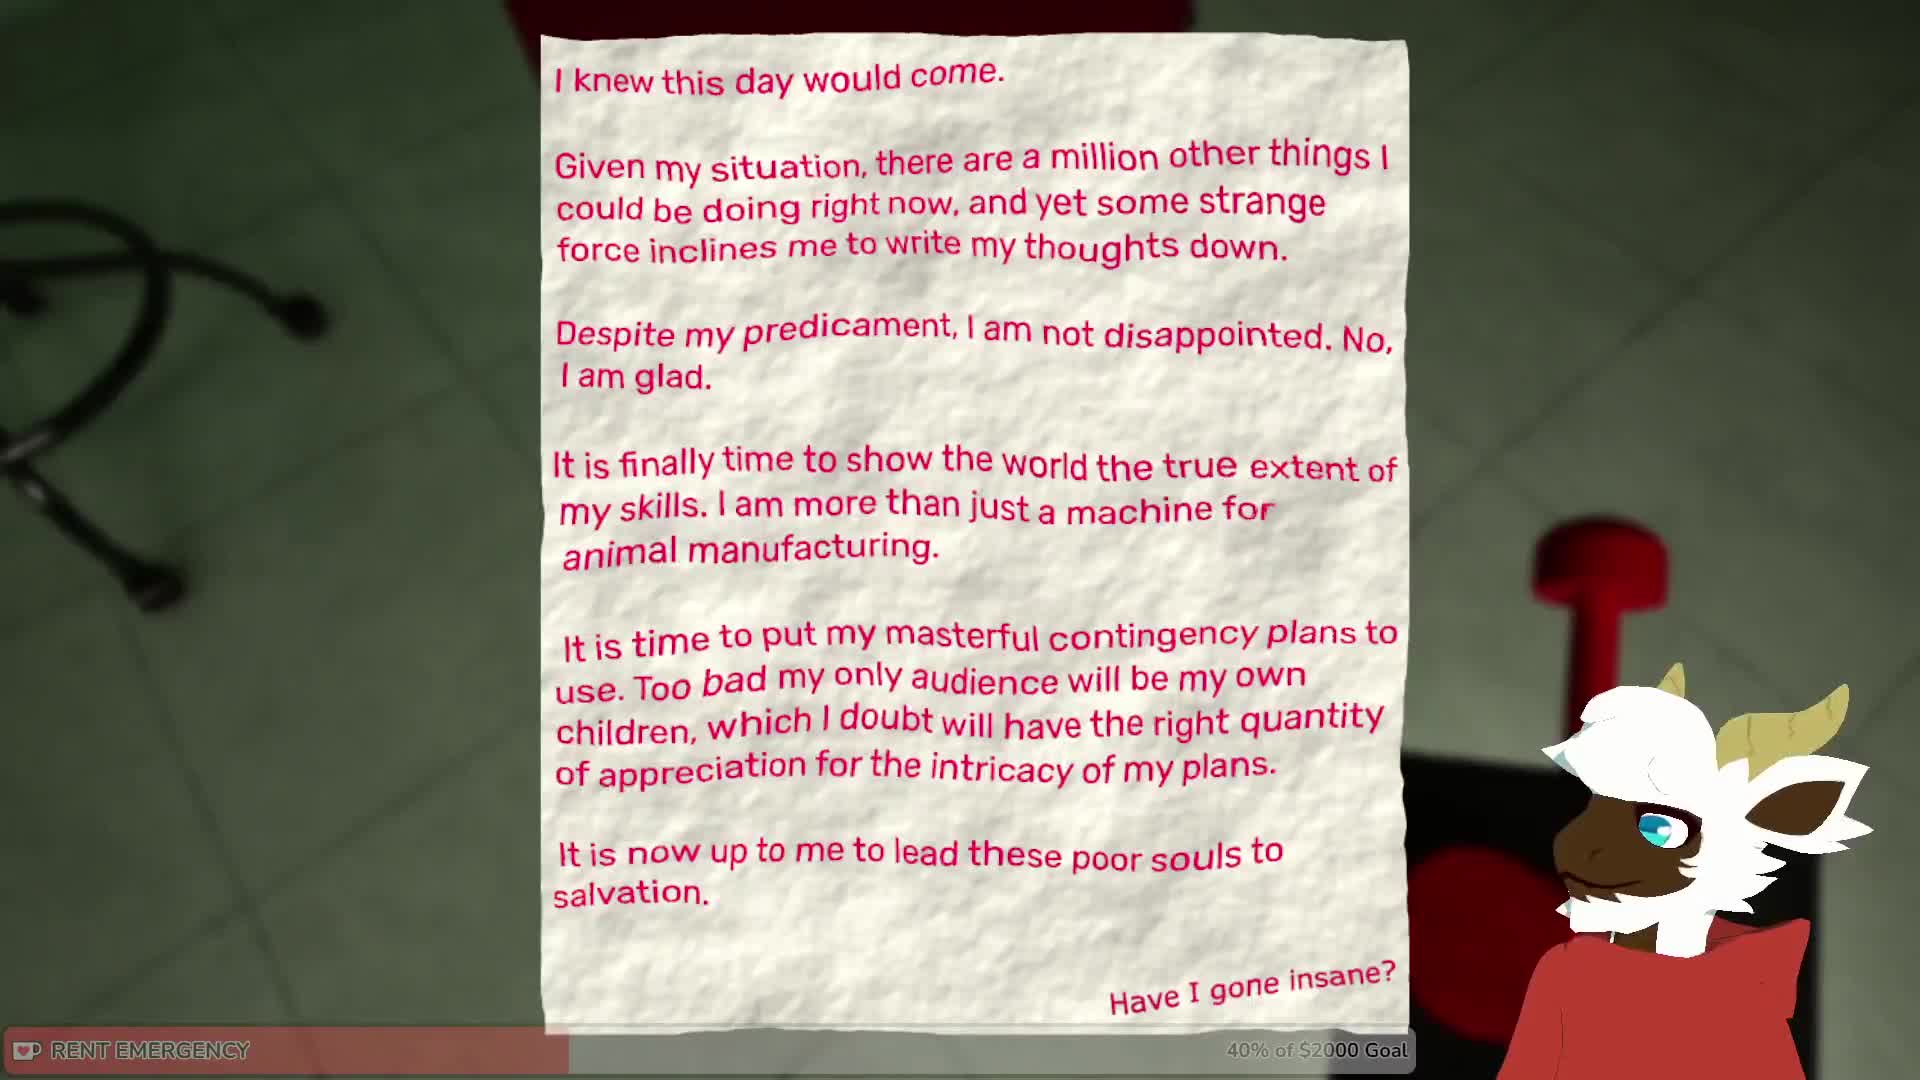 I knew this day would come.
Given my situation, there are a million other things I
could be doing right now, and yet some strange
force inclines me to write my thoughts down.
Despite my predicament, I am not disappointed. No,
I am glad.
It is finally time to show the world the true extent of
my skills. I am more than just a machine for
animal manufacturing.
It is time to put my masterful contingency plans to
use. Too bad my only audience will be my own
children, which I doubt will have the right quantity
of appreciation for the intricacy of my plans.
It is now up to me to lead these poor souls to
salvation.
Have I gone insane?
RENT EMERGENCY
40% of $2000 Goal